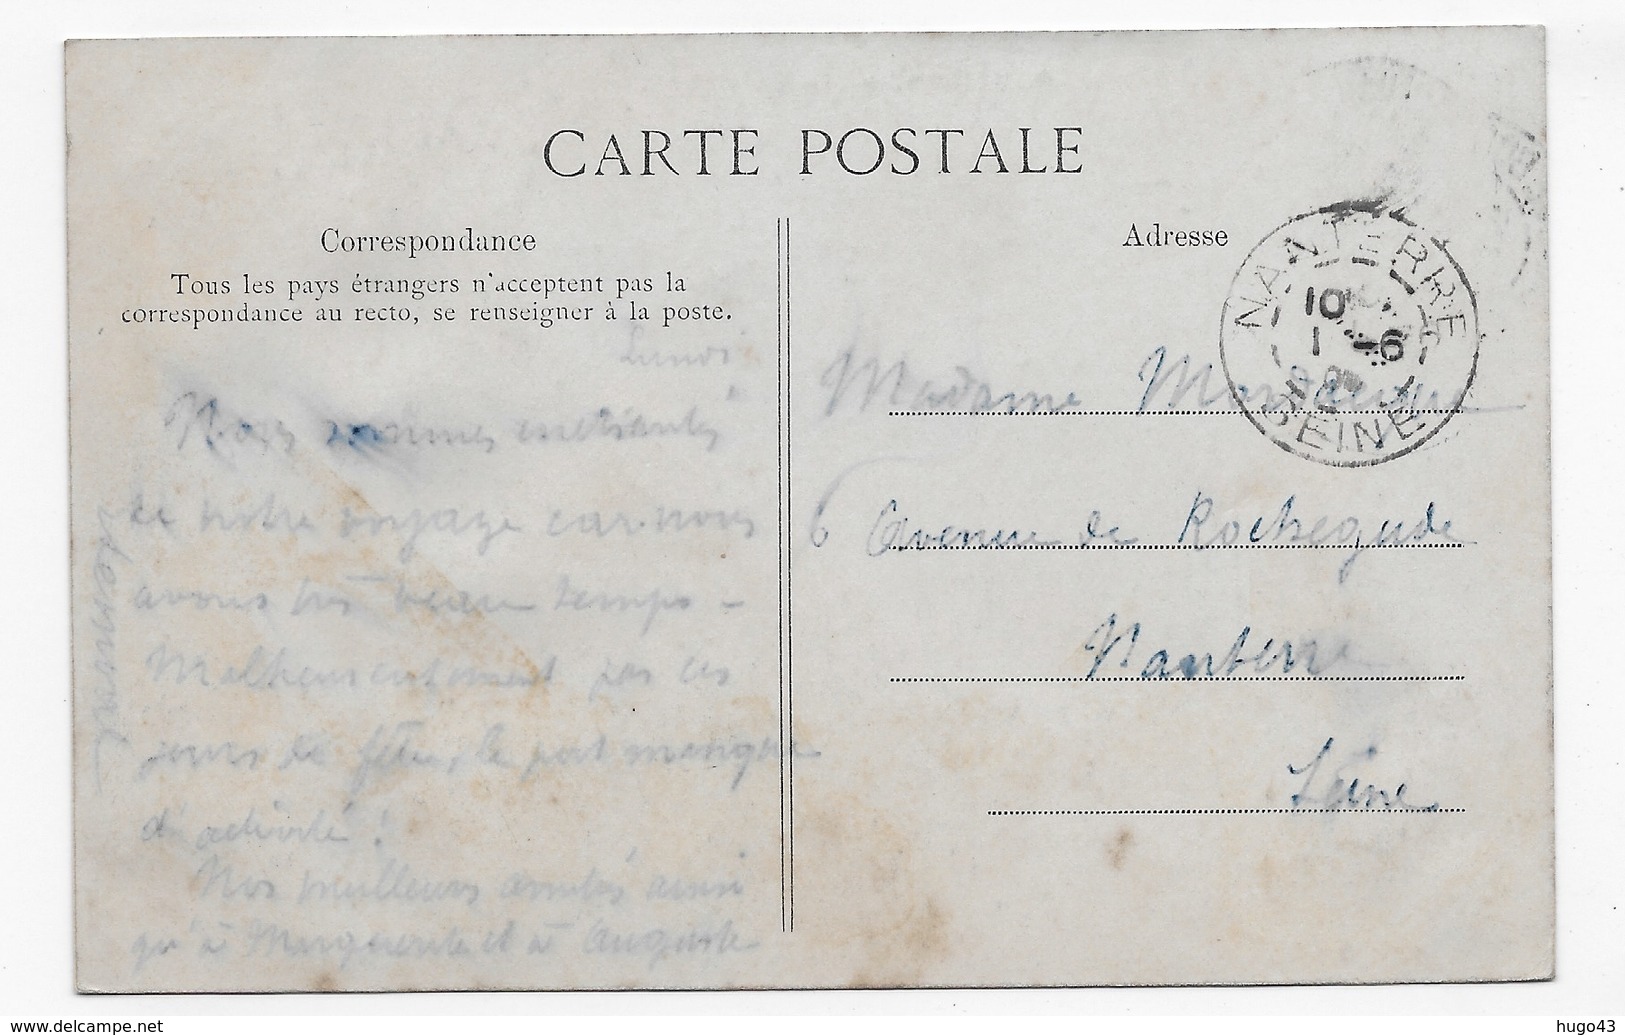 CARTE POSTALE
Correspondance
Tous les pays étrangers n'acceptent pas la
correspondance au recto, se renseigner à la poste.
Lundi
Nous sommes enchantés
de notre voyage car nous
avons très beau temps –
Malheureusement par ces
jours de fêtes, le port manque
d'activité !
Nos meilleures amitiés ainsi
qu'à Marguerite et à Auguste
Adresse
NANTERRE
10
1 -6
SEINE
Madame
6 Avenue de Rochegude
Nanterre
Seine
www.delcampe.net
hugo43